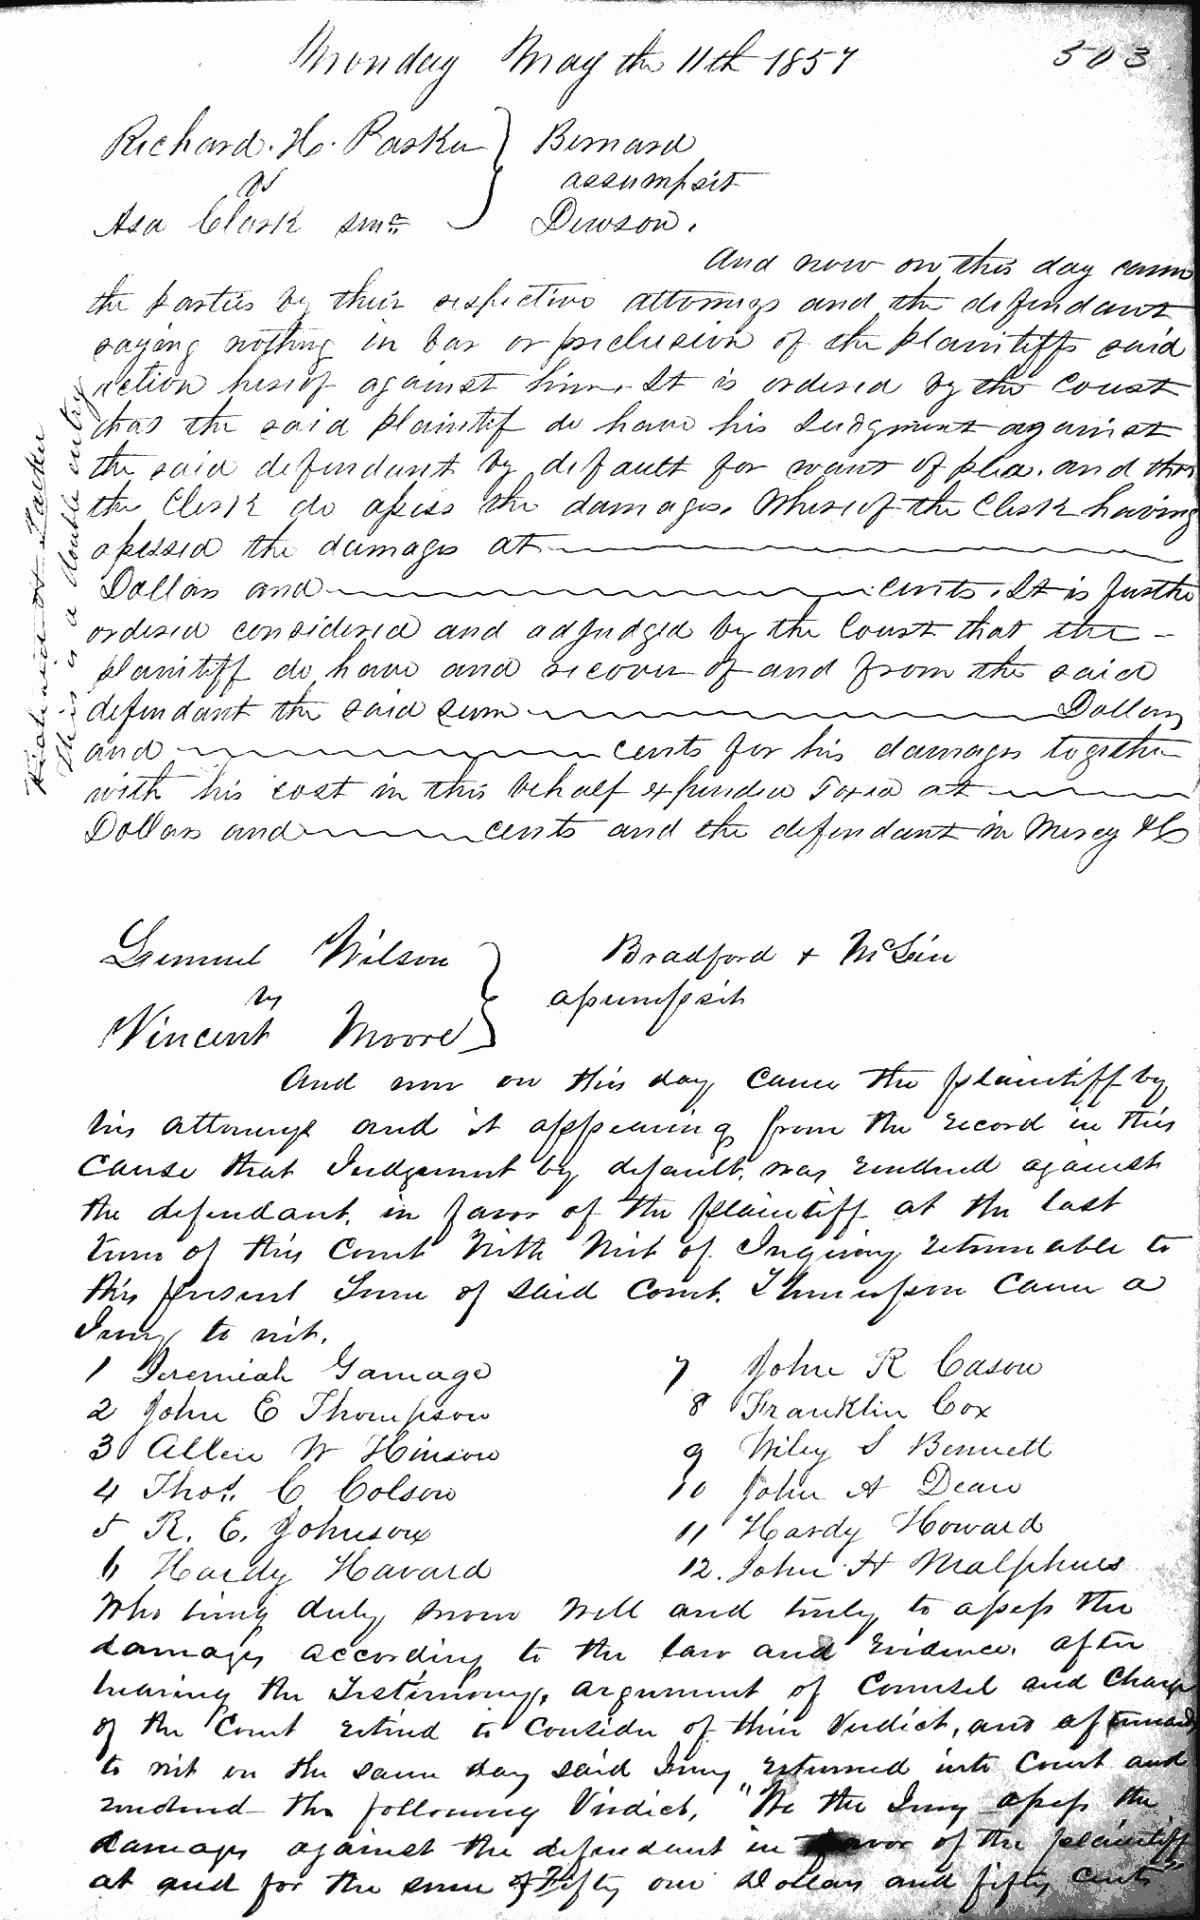 Monday May the 11th 1857
503
Richard. H. Parker
vs
Asa Clark senr
Bernard
assumpsit
Dewson.
And now on this day came
the parties by their respective attorneys and the defendant
saying nothing in bar or preclusion of the plaintiffs said
action hereof against him. It is ordered by the Court
that the said plaintiff do have his Judgment against
the said defendant by default for want of plea. and that
the Clerk do assess the damages. Whereof the Clerk having
assessed the damages at
Dollars and cents. It is further
ordered considered and adjudged by the Court that the
plaintiff do have and recover of and from the said
defendant the said sum Dollars
and cents for his damages together
with his cost in this behalf expended Taxed at
Dollars and cents and the defendant in Mercy &C
Richard H Parker
this is a double entry
Lemuel Wilson
vs
Vincent Moore
Bradford + McLin
assumpsit
And now on this day came the plaintiff by
his attorneys and it appearing from the record in this
cause that Judgement by default. was rendered against
the defendant. in favor of the plaintiff at the last
term of this Court With Writ of Inquiry returnable to
this present Term of said Court. Thereupon Came a
Jury to wit.
1 Jeremiah Gamage
2 John E Thompson
3 Allen W Hinson
4 Thos. C Colson
5 R. E. Johnson
6 Hardy Havard
7 John R Cason
8 Franklin Cox
9 Wiley S Bennett
10 John A Dean
11 Hardy Howard
12. John H Malphurs
Who being duly sworn well and truly to assess the
damages according to the law and Evidence. after
hearing the Testimony, argument of Counsel and Charge
of the Court retired to consider of their Verdict, and afterwards
to wit on the same day said Jury returned into Court and
rendered the following Verdict, "We the Jury assess the
damages against the defendant in favor of the plaintiff
at and for the sum of Fifty one Dollars and fifty cents"